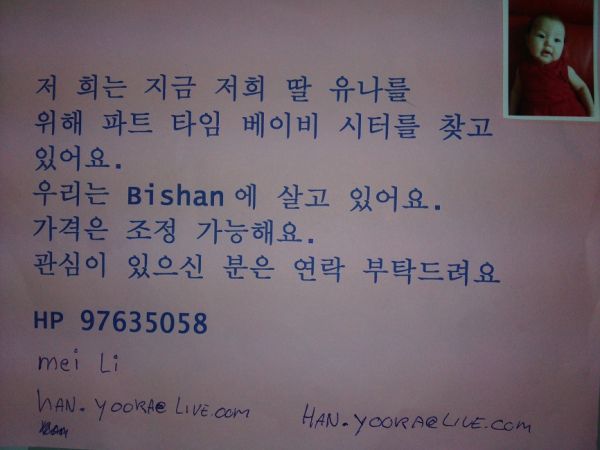 저 희는 지금 저희 딸 유나를
위해 파트 타임 베이비 시터를 찾고
있어요.
우리는 Bishan에 살고 있어요.
가격은 조정 가능해요.
관심이 있으신 분은 연락 부탁드려요
HP 97635058
mei Li
HAN.YOORA@LIVE.com
HAN.YOORA@LIVE.com